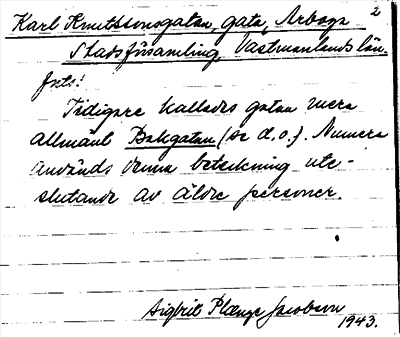 2
Karl Knutssonsgatan, gata, Arboga
Stadsförsamling, Västmanlands län.
forts:
Tidigare kallades gatan mera
allmänt Bakgatan (se d.o.). Numera
används denna beteckning ute-
slutande av äldre personer.
Sigbrit Plænge Jacobson
1943.